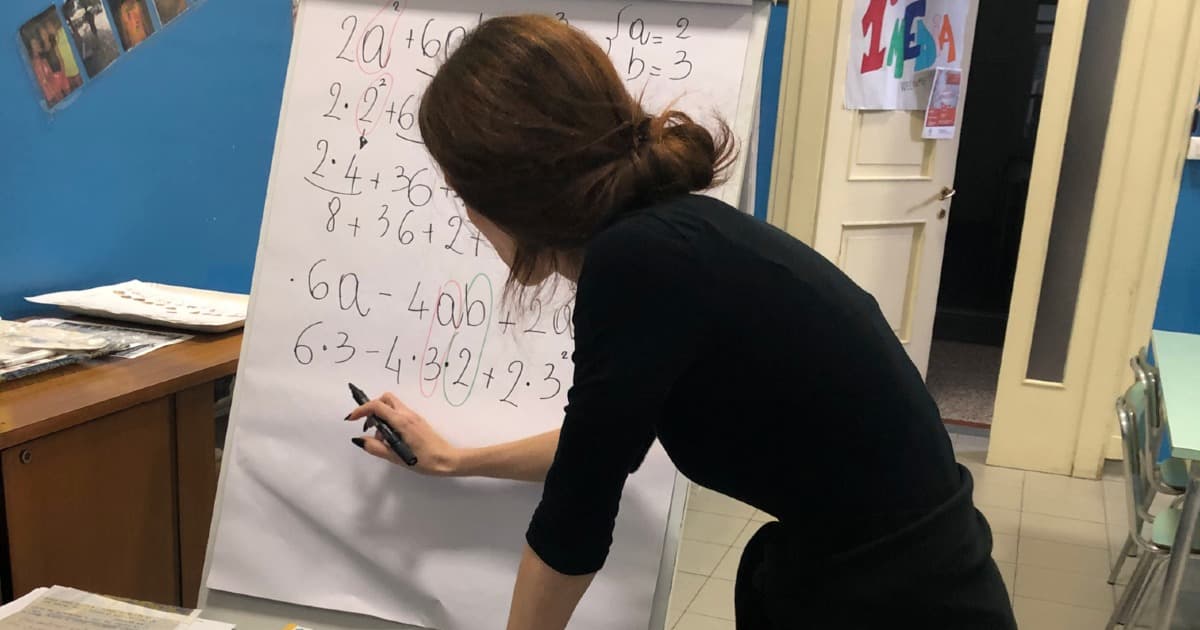 2a² + 6a
{a = 2
b = 3
2 · 2² + 6
2 · 4 + 36 +
8 + 36 + 27
· 6a - 4ab + 2a
6 · 3 - 4 · 3 · 2 + 2 · 3²
1° MEDA